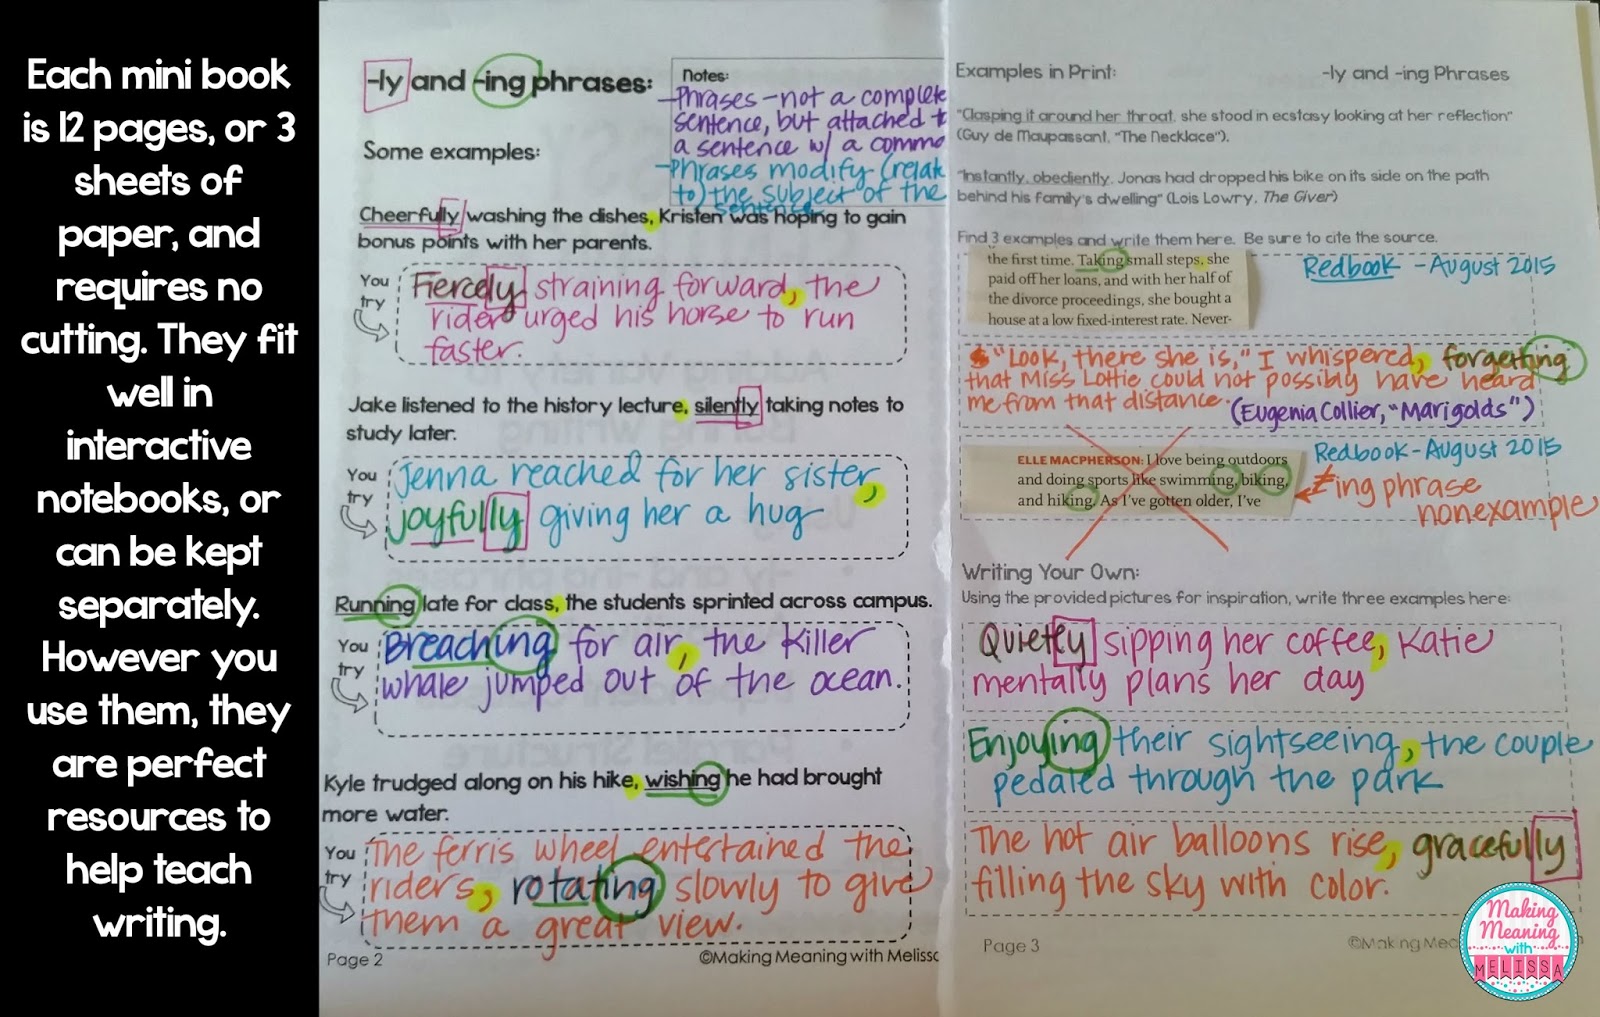 Each mini book
is 12 pages, or 3
sheets of
paper, and
requires no
cutting. They fit
well in
interactive
notebooks, or
can be kept
separately.
However you
use them, they
are perfect
resources to
help teach
writing.
-ly and -ing phrases:
Notes:
-Phrases - not a complete
sentence, but attached t
a sentence w/ a comma
-Phrases modify (relat
to) the subject of the
sentence
Some examples:
Cheerfully washing the dishes, Kristen was hoping to gain
bonus points with her parents.
You
try
Fiercely straining forward, the
rider urged his horse to run
faster.
Jake listened to the history lecture, silently taking notes to
study later.
You
try
Jenna reached for her sister,
joyfully giving her a hug
Running late for class, the students sprinted across campus.
You
try
Breaching for air, the killer
whale jumped out of the ocean.
Kyle trudged along on his hike, wishing he had brought
more water.
You
try
The ferris wheel entertained the
riders, rotating slowly to give
them a great view.
Page 2
©Making Meaning with Melissa
Examples in Print:
-ly and -ing Phrases
"Clasping it around her throat, she stood in ecstasy looking at her reflection"
(Guy de Maupassant, "The Necklace").
"Instantly, obediently, Jonas had dropped his bike on its side on the path
behind his family's dwelling" (Lois Lowry, The Giver)
Find 3 examples and write them here. Be sure to cite the source.
the first time. Taking small steps, she
paid off her loans, and with her half of
the divorce proceedings, she bought a
house at a low fixed-interest rate. Never-
Redbook - August 2015
"Look, there she is," I whispered, forgetting
that Miss Lottie could not possibly have heard
me from that distance. (Eugenia Collier, "Marigolds")
ELLE MACPHERSON: I love being outdoors
and doing sports like swimming, biking,
and hiking. As I've gotten older, I've
Redbook - August 2015
ing phrase
nonexample
Writing Your Own:
Using the provided pictures for inspiration, write three examples here:
Quietly sipping her coffee, Katie
mentally plans her day
Enjoying their sightseeing, the couple
pedaled through the park
The hot air balloons rise, gracefully
filling the sky with color.
Page 3
©Making Mea
Making
Meaning
with
MELISSA